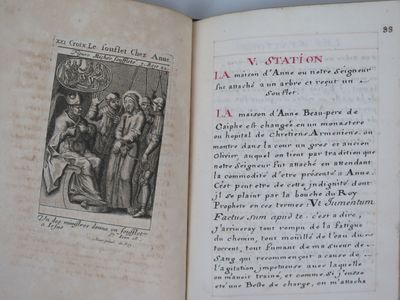 XXI Croix Le soufflet Chez Anne
Figure Michée soufflété 3. Rois 22.
Un des ministres donna un soufflet
a Jesus
38
V. STATION
LA maison d'Anne ou notre Seigneur
fut attaché a un arbre et reçut un
Soufflet.
LA maison d'Anne Beau-pere de
Caiphe est changée en un monastere
ou hopital de Chretiens Armeniens. on
montre dans la cour un gros et ancien
Olivier, auquel on tient par tradition que
notre Seigneur fut attaché en attendant
la commodité d'etre présenté a Anne.
C'est peut etre de cette indignité dont
il se plaint par la bouche du Roy
Prophete en ces termes Vt Jumentum
Factus sum apud te. c'est a dire,
j'arriveray tout rempu de la Fatigue
du chemin, tout mouillé de l'eau du
torrent, tout fumant de ma sueur de
Sang qui recommençoit a cause de
l'agitation, impetueuse avec laquelle
on me faisoit traine, et comme si j'eusse
ete une Beste de charge, on m'attacha